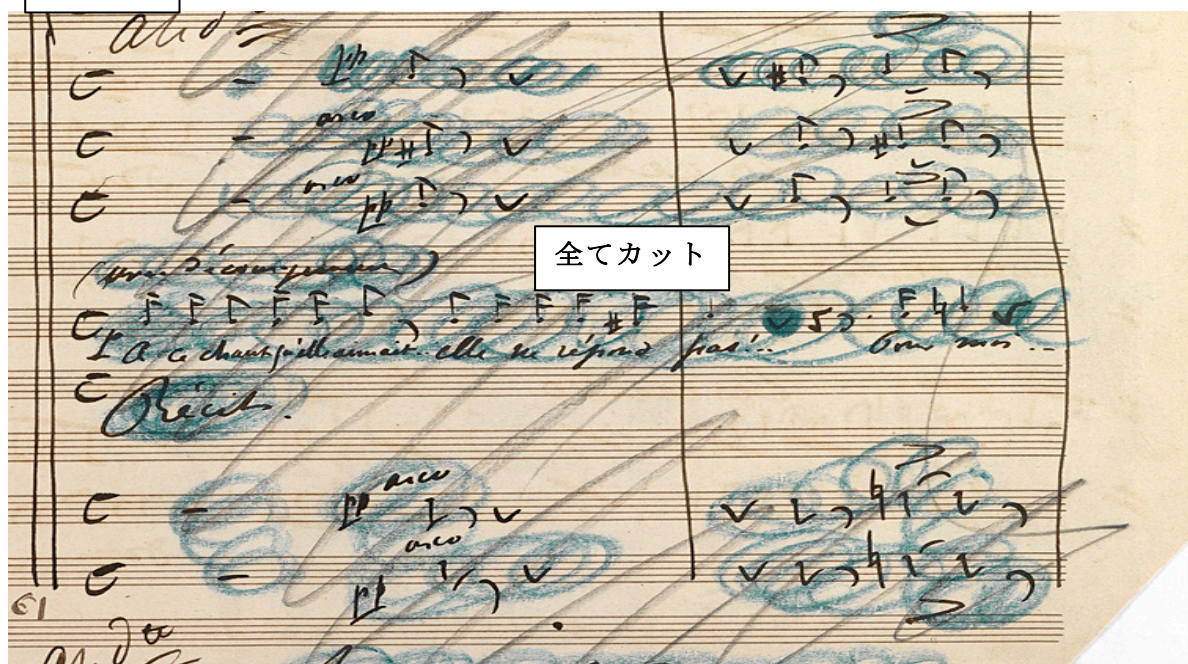 All°
pp
arco
pp
arco
pp
全てカット
(avec découragement)
A ce chant qu'elle aimait.. elle ne répond pas!... Pour moi...
Récit.
arco
pp
arco
pp
61
And.te